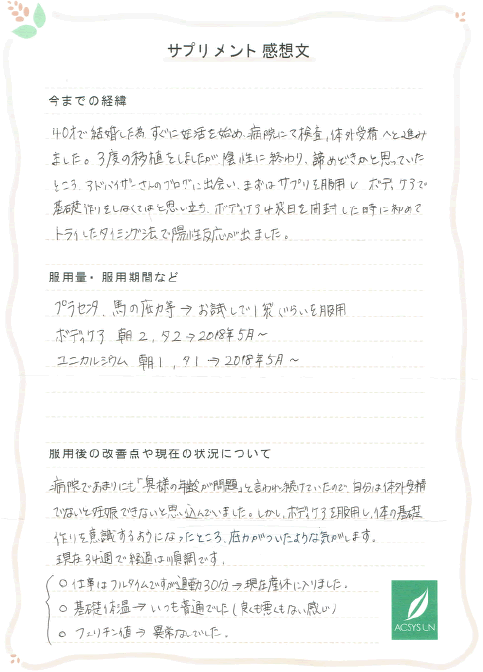 サプリメント 感想文
今までの経緯
40才で結婚した為、すぐに妊活を始め、病院にて検査、体外受精へと進み
ました。3度の移植をしましたが陰性に終わり、諦めどきかと思っていた
ところ、アドバイザーさんのブログに出会い、まずはサプリを服用し ボディケアで
基礎作りをしなくてはと思い立ち、ボディケア4袋目を開封した時に初めて
トライしたタイミング法で陽性反応が出ました。
服用量・服用期間など
プラセンタ、馬の底力等 → お試しで1袋ぐらいを服用
ボディケア 朝2, 夕2 → 2018年5月~
ユニカルシウム 朝1, 夕1 → 2018年5月~
服用後の改善点や現在の状況について
病院であまりにも「奥様の年齢が問題」と言われ続けていたので、自分は体外受精
でないと妊娠できないと思い込んでいました。しかし、ボディケアを服用し、体の基礎
作りを意識するようになったところ、底力がついたような気がします。
現在34週で経過は順調です。
○ 仕事はフルタイムですが通勤30分 → 現在産休に入りました。
○ 基礎体温 → いつも普通でした(良くも悪くもない感じ)
○ フェリチン値 → 異常なしでした。
ACSYSUN